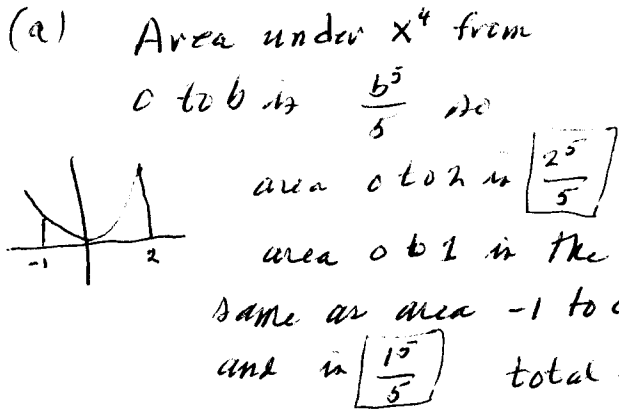 (a) Area under x⁴ from
0 to b is b⁵/5 so
area 0 to 2 is 2⁵/5
-1 2
area 0 to 1 is the
same as area -1 to 0
and is 1⁵/5 total